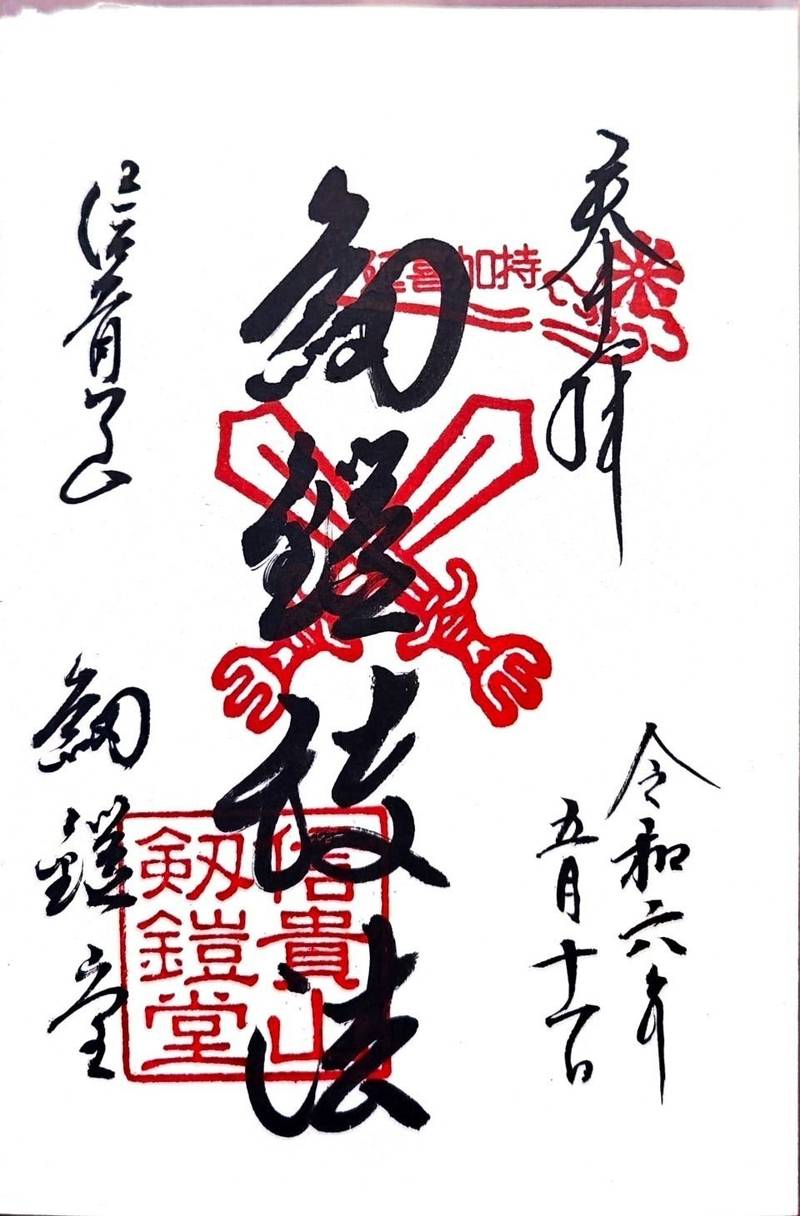 奉拝
令和六年
五月十一日
延喜加持
劔鎧護法
信貴山
劔鎧堂
信貴山
劔鎧堂